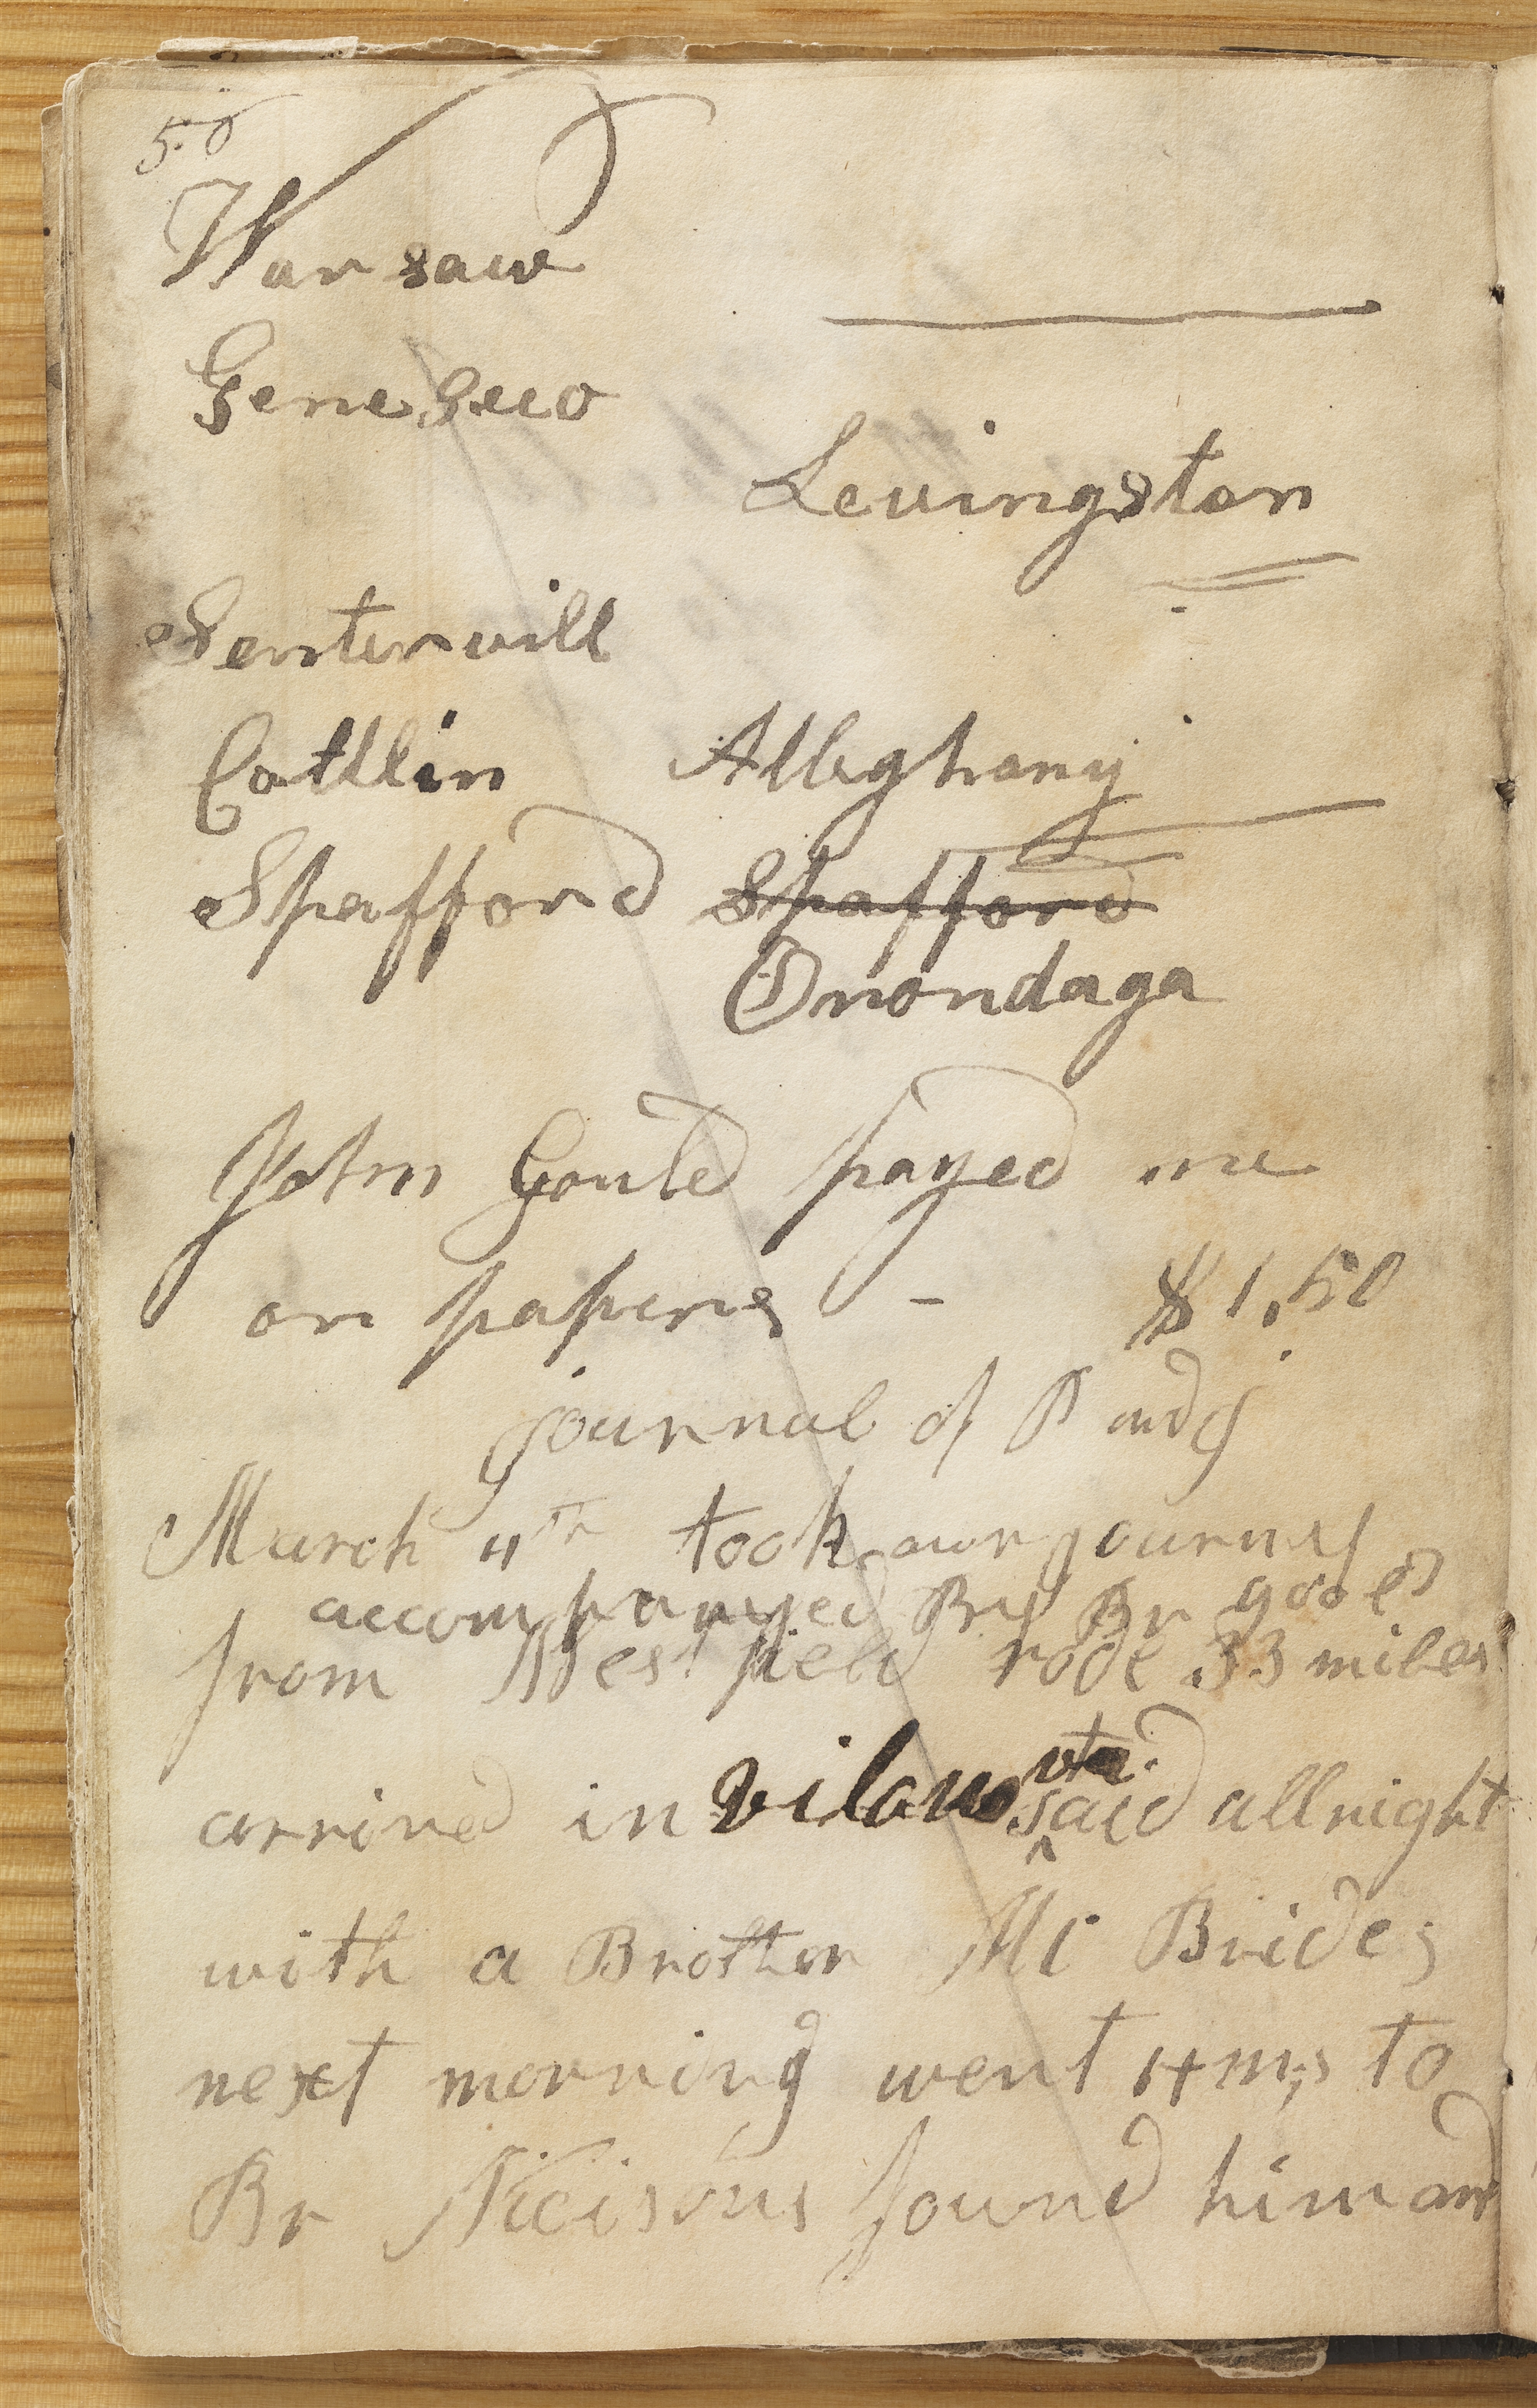 50
Warsaw
Geneseeo
Levingston
Sentervill
Catlin Alleghany
Spafford Spafford
Onondaga
John Gould payed me
on papers - $1,50
journal of P and G
March 4th took our journey
accompanyed By Br goold
from Westfield rode 33 miles
arrived in vilanovta. said all night
with a Brother Mc Brides
next morning went 4 m,s to
Br Nicisons found him and